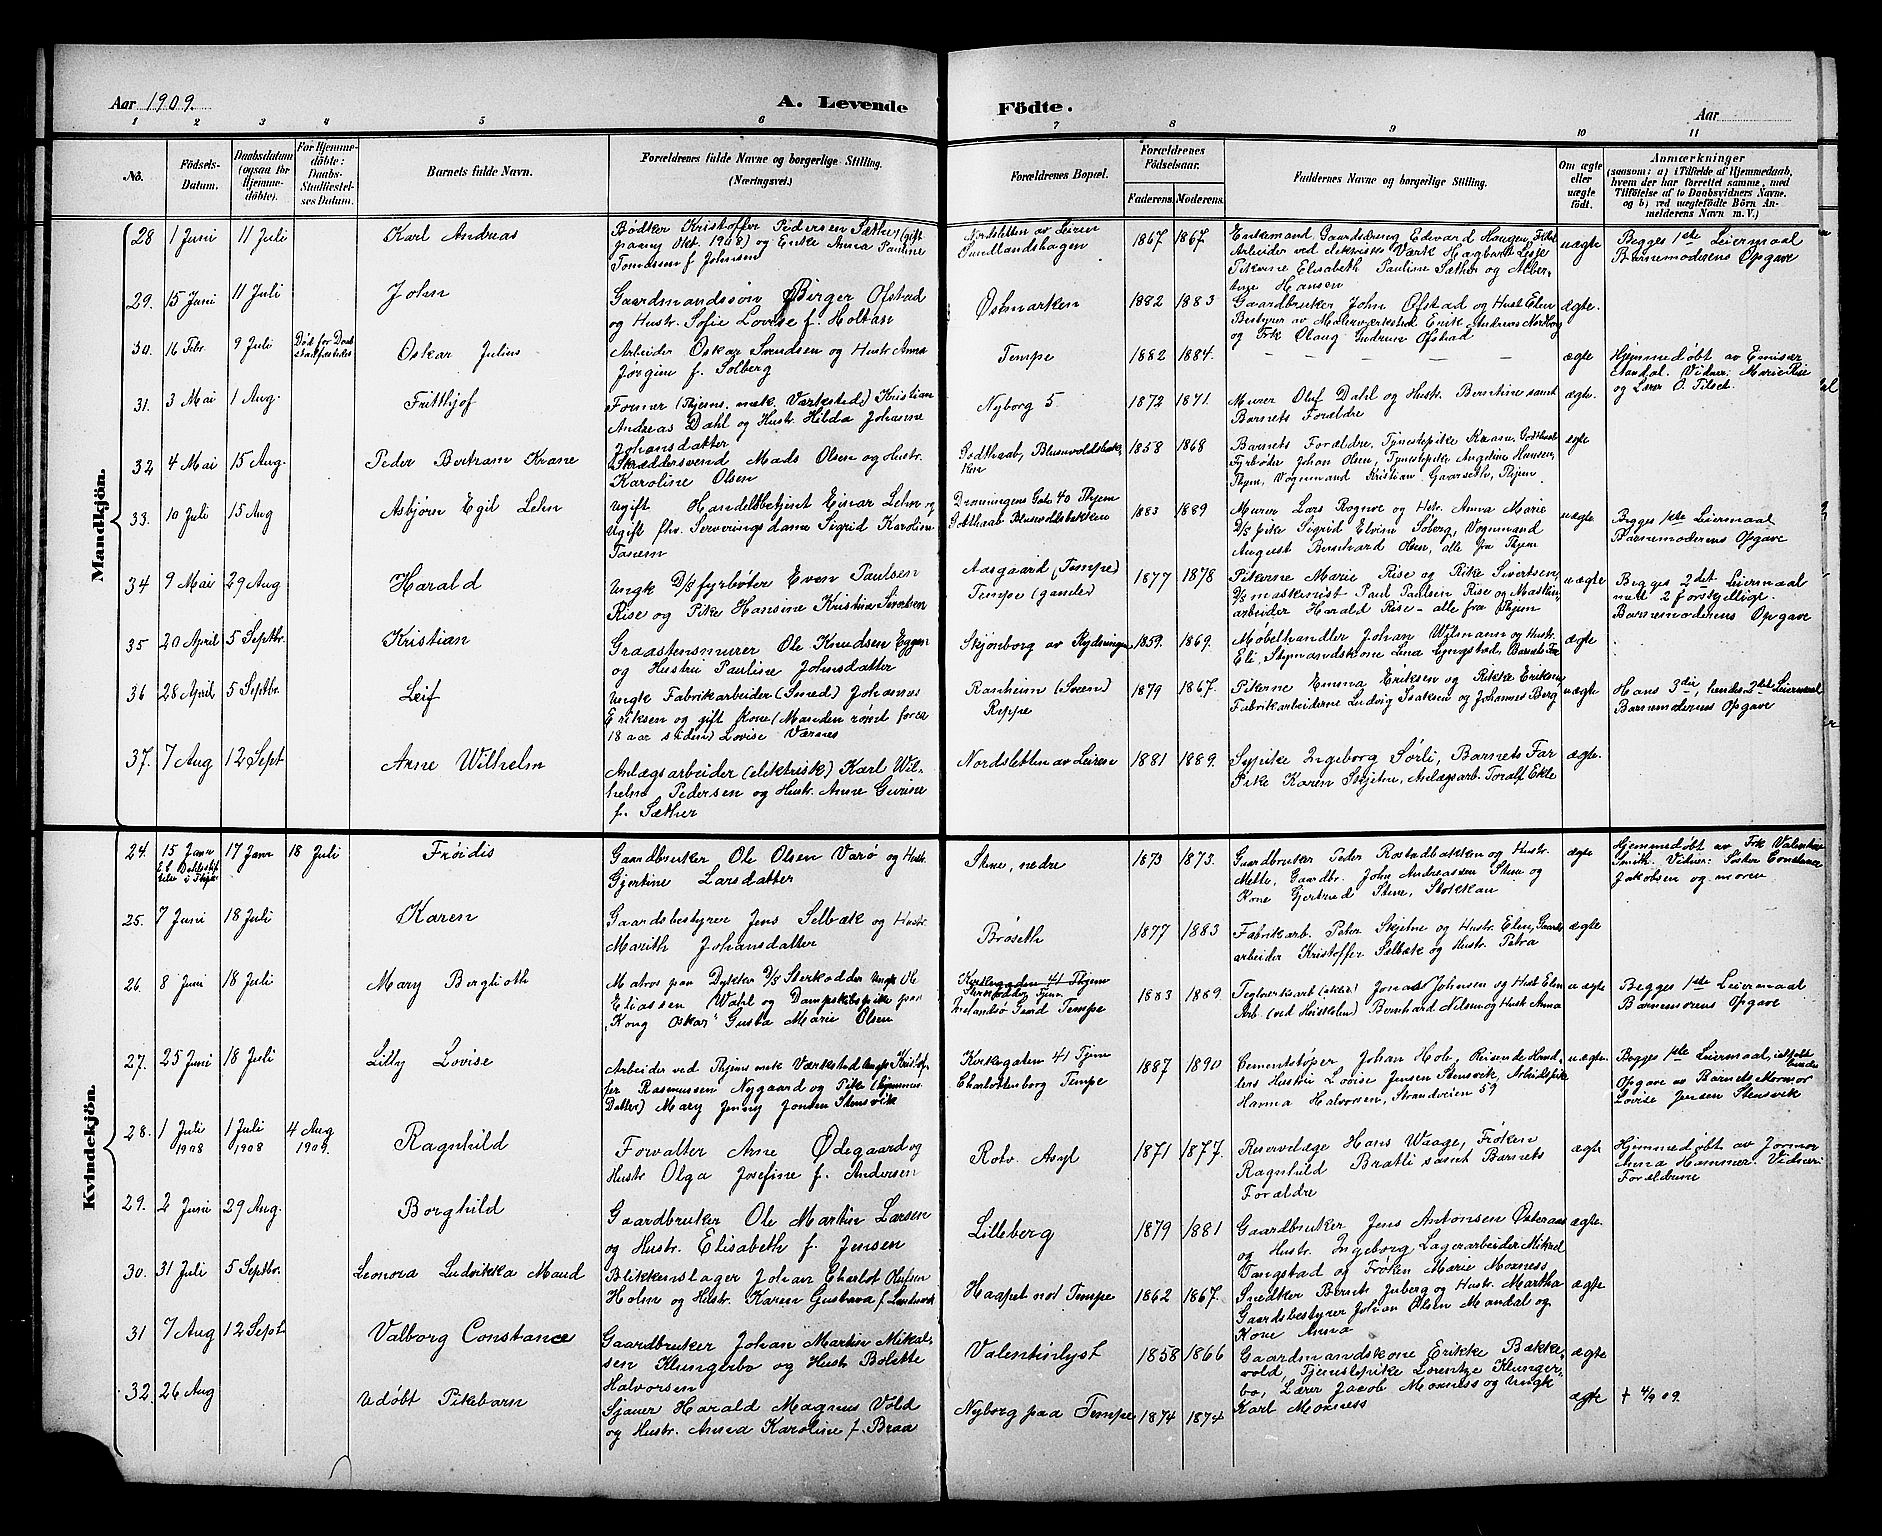 Aar 1909.
A. Levende Födte.
Aar
1 2 3 4 5 6 7 8 9 10 11
No.
Födsels-
Datum.
Daabsdatum
(ogsaa for
Hjemme-
döbte).
For Hjemme-
döbte:
Daabs-
Stadfæstel-
ses Datum.
Barnets fulde Navn.
Forældrenes fulde Navne og borgerlige Stilling.
(Næringsvei.)
Forældrenes Bopæl.
Forældrenes
Födselsaar.
Faderens. Moderens.
Faddernes Navne og borgerlige Stilling.
Om ægte
eller
uægte
födt.
Anmærkninger
(saasom: a) i Tilfælde af Hjemmedaab,
hvem der har forrettet samme, med
Tilföielse af to Daabsvidners Navne,
og b) ved uægtefödte Börn An-
melderens Navn m. V.)
Mandkjön.
28 1 Juni 11 Juli Karl Andreas
Bødker Kristoffer Pedersen Sæther (gift
paany Okt. 1908) og Enke Anna Pauline
Tomassen f. Johnsen
Nordsletten av Leiren
Sundlandshagen
1867 1867.
Enkemand Gaardedreng Edvard Haugen,
Arbeider ved elektriske Værk Hagbart
Pikerne Elisabeth Pauline Sæther og Alber-
tine Hansen
uægte
Begges 1ste Leiermaal
Barnemoderens Opgave
29. 15 Juni 11 Juli John
Gaardmandssøn Birger Ofstad
og Hustr. Sofie Lovise f. Holtan
Østmarken
1882 1883
Gaardbruker John Ofstad og Hust Elen
Bestyrer av Malerværksted Enik Andreas Nordborg
og Frk Olaug Gudrun Ofstad
ægte.
30. 16 Febr. 9 Juli Død før Daab
stadfæstedes
Oskar Julius
Arbeider Oskar Svendsen og Hustr Anna
Jørgine f. Solberg
Tempe
1882 1884.
– – – – – –
ægte
Hjemmedøbt av Emisær
Standal. Vidner: Marie Rise
og Lærer O. Tilset.
31. 3 Mai 1 Aug. Frithjof
Former (Thjems. mek. Værksted) Kristian
Andreas Dahl og Hustr Hilda Johanne
Johansdatter
Nyborg 5
1872 1871.
Murer Olef Dahl og Hustr. Berntine samt
Barnets Forældre
ægte.
32 4 Mai 15 Aug. Peder Bertram Krane
Skræddersvend Mads Olsen og Hustr.
Karoline Olsen
Godthaab, Blusuvoldsbak-
ken
1858 1868
Barnets Forældre, Tjenestepike Krane, Godthaab
Fyrbøter Johan Olsen, Tjenestepike Angeline Hansen,
Thjem, Vognmand Kristian Gaarseth, Thjem.
ægte
33. 10 Juli 15 Aug Asbjørn Egil Lehn
Ugift Handelsbetjent Einar Lehn og
Ugift fhv. Serveringsdame Sigrid Karoline
Tanem
Dronningens Gate 40 Thjem
Godthaab Blusuvoldsbakken
1883 1889
Murer Lars Rognve og Hstr. Anna Marie
D/S Pike Sigrid Elvine Søberg, Vognmand
August Bernhard Olsen, alle fra Thjem
uægte
Begges 1ste Leiermaal
Barnemoderens Opgave
34 9 Mai 29 Aug Harald
Ungk. D/S fyrbøter Even Paulsen
Rise og Pike Hansine Kristine Sivertsen
Aasgaard (Tempe)
Tempe (gamle)
1877 1878
Pikerne Marie Rise og Rike Sivertsen,
D/S maskinist Paul Paulsen Rise og Maskin-
arbeider Harald Rise – alle fra Thjem
uægte
Begges 2det Leiermaal
med 2 forskjellige.
Barnemoderens Opgave
35 20 April 5 Septbr. Kristian
Graastensmurer Ole Knudsen Eggen
og Hustru Pauline Johnsdatter
Skjønborg av Rydningen
1859. 1869.
Møbelhandler Johan Wilmann og Hustr.
Eli, Styrmandskone Lina Lyngstad, Barnets Far
ægte
36 28 April 5 Septbr. Leif
Ungk Fabrikarbeider (Smed) Johannes
Eriksen og gift Kone (Manden rømt for ca
18 aar siden) Lovise Værnes
Ranheim (Sveen)
Reppe
1879 1867.
Pikerne Emma Eriksen og Rikke Eriksen
Fabrikarbeiderne Ludvig Isaksen og Johannes Berg
uægte
Hans 3die, hendes 2det Leiermaal
Barnemoderens Opgave
37. 7 Aug 12 Sept Arne Wilhelm
Anlægsarbeider (elektrisk) Karl Wil-
helm Pedersen og Hustr. Anne Gurine
f. Sæther
Nordsletten av Leirene
1881 1889.
Sypike Ingeborg Sørli, Barnets Far
Pike Karen Skjetne, Anlægsarb. Toralf Ekle
ægte.
Kvindekjön.
24. 15 Janr 17 Janr 18 Juli Frøidis
Gaardbruker Ole Olsen Varø og Hustr.
Gjertine Larsdatter
Stene, nedre
1873 1873.
Gaardbruker Peder Rostadbakken og Hustr.
Mette, Gaardbr. John Andreassen Stene og
Kone Gjertrud Stene, Stokkan
ægte
Hjemmedøbt av Frk Valentine
Smith. Vidner: Søster Constance
Jakobsen og moren
25. 7 Juni 18 Juli Karen
Gaardsbestyrer Jens Selbæk og Hustr.
Marith Johansdatter
Brøseth
1877 1883
Fabrikarb. Peter Skjetne og Hustr. Elen, Gaards
arbeider Kristoffer Selbæk og Hustr. Petra
ægte
26. 8 Juni 18 Juli Mary Berglioth
Matros paa Dykker D/S Sterkodder Ungk Ole
Eliassen Wahl og Dampskibspike paa
"Kong Oskar" Gusta Marie Olsen
Kirkegaden 41 Thjem
Tempe
1883 1889.
Teglverksarb Jonas Johnsen og Hust Elen
Arb. Bernhard Nilsen og Hustr. Anna
uægte
Begges 1ste Leiermaal
Barnemorens Opgave
27. 25 Juni 18 Juli Lilly Lovise
Arbeider ved Thjems mek Værksted Ungk Kristof-
fer Rasmussen Nygaard og Pike (hjemmev.
Datter) Mary Jenny Jensen Stensvik
Kirkegaten 41 Tjem
Charlottenborg Tempe
1887 1890
Cementstøper Johan Hole, Reisende Hand-
lers Hustru Lovise Jensen Stensvik, Arbeidspike
Hanna Halvorsen, Strandveien 59
uægte.
Begges 1ste Leiermaal,
Opgave av Barnets Mormor
Lovise Jensen Stensvik
28. 1 Juli
1908
1 Juli
1908
4 Aug
1909.
Ragnhild
Forvalter Arne Ødegaard og
Hustr Olga Josefine f. Andersen
Rotv. Asyl
1871 1877.
Reservelæge Hans Waage, Frøken
Ragnhild Bratli samt Barnets
Forældre
ægte
Hjemmedøbt av Jormor
Anna Hammer. Vidner:
Forældrene
29. 2 Juni 29 Aug. Borghild
Gaardbruker Ole Martin Larsen
og Hustr. Elisabeth f. Jensen
Lilleberg
1879 1881
Gaardbruker Jens Antonsen Østeraas
og Hustr. Ingeborg, Lagerarbeider Mikael
Tangstad og Frøken Marie Moxness
ægte.
30. 31 Juli 5 Septbr. Leonora Ludvikka Maud
Blikkenslager Johan Charlot Olufsen
Holm og Hustr. Karen Gustava f. Landsvik
Haapet nol Tempe
1862 1867.
Snedker Bernt Juberg og Hustr. Martha
Gaardsbestyrer Johan Olsen Mandal og
Kone Anna
ægte
31 7 Aug 12 Sept Valborg Constance
Gaardbruker Johan Martin Mikal-
sen Klungerbo og Hustr. Bolette
Halvorsen
Valentinlyst
1858 1866
Gaardmandskone Erikke Bakke-
vold, Tjenestepike Lorentze Klunger-
bo, Lærer Jacob Moxness og Ungk
Karl Moxness
ægte
32. 26 Aug Udøbt Pikebarn
Sjauer Harald Magnus Vold
og Hustr. Anna Karoline f. Braa
Nyborg paa Tempe
1874 1874
ægte
† 4/9 09.